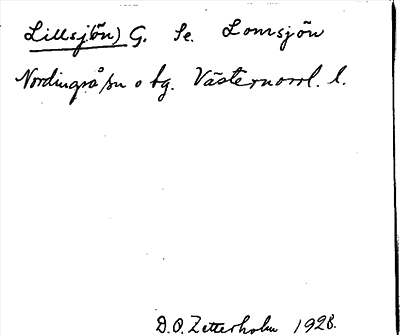 Lillsjön) G. Se. Lomsjön
Nordingrå sn o tg. Västernorrl. l.
D.O. Zetterholm 1928.